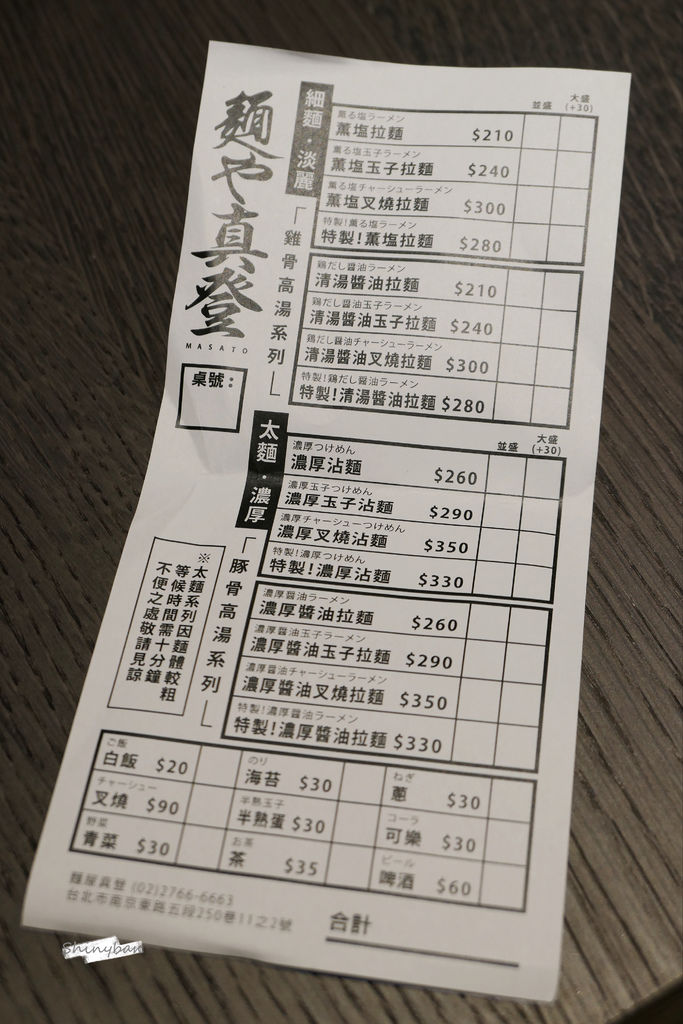 麺や真登
MASATO
桌號：
細麵・淡麗
「雞骨高湯系列」
並盛
大盛
(+30)
薫る塩ラーメン
薰塩拉麵 $210
薫る塩玉子ラーメン
薰塩玉子拉麵 $240
薫る塩チャーシューラーメン
薰塩叉燒拉麵 $300
特製!薫る塩ラーメン
特製!薰塩拉麵 $280
鶏だし醤油ラーメン
清湯醬油拉麵 $210
鶏だし醤油玉子ラーメン
清湯醬油玉子拉麵 $240
鶏だし醤油チャーシューラーメン
清湯醬油叉燒拉麵 $300
特製!鶏だし醤油ラーメン
特製!清湯醬油拉麵 $280
太麵・濃厚
「豚骨高湯系列」
並盛
大盛
(+30)
濃厚つけめん
濃厚沾麵 $260
濃厚玉子つけめん
濃厚玉子沾麵 $290
濃厚チャーシューつけめん
濃厚叉燒沾麵 $350
特製!濃厚つけめん
特製!濃厚沾麵 $330
濃厚醤油ラーメン
濃厚醬油拉麵 $260
濃厚醤油玉子ラーメン
濃厚醬油玉子拉麵 $290
濃厚醤油チャーシューラーメン
濃厚醬油叉燒拉麵 $350
特製!濃厚醤油ラーメン
特製!濃厚醬油拉麵 $330
※太麵系列因麵體較粗
等候時間需十分鐘
不便之處敬請見諒
ご飯 のり ねぎ
白飯 $20 海苔 $30 蔥 $30
チャーシュー 半熟玉子 コーラ
叉燒 $90 半熟蛋 $30 可樂 $30
野菜 お茶 ビール
青菜 $30 茶 $35 啤酒 $60
麵屋真登 (02)2766-6663
台北市南京東路五段250巷11之2號
合計
Shinyban